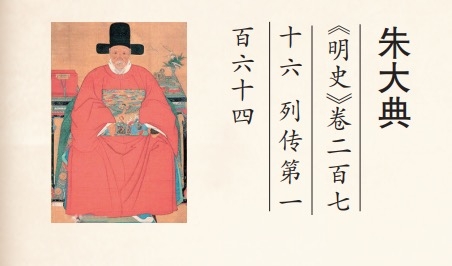 朱大典
《明史》卷二百七
十六 列传第一
百六十四